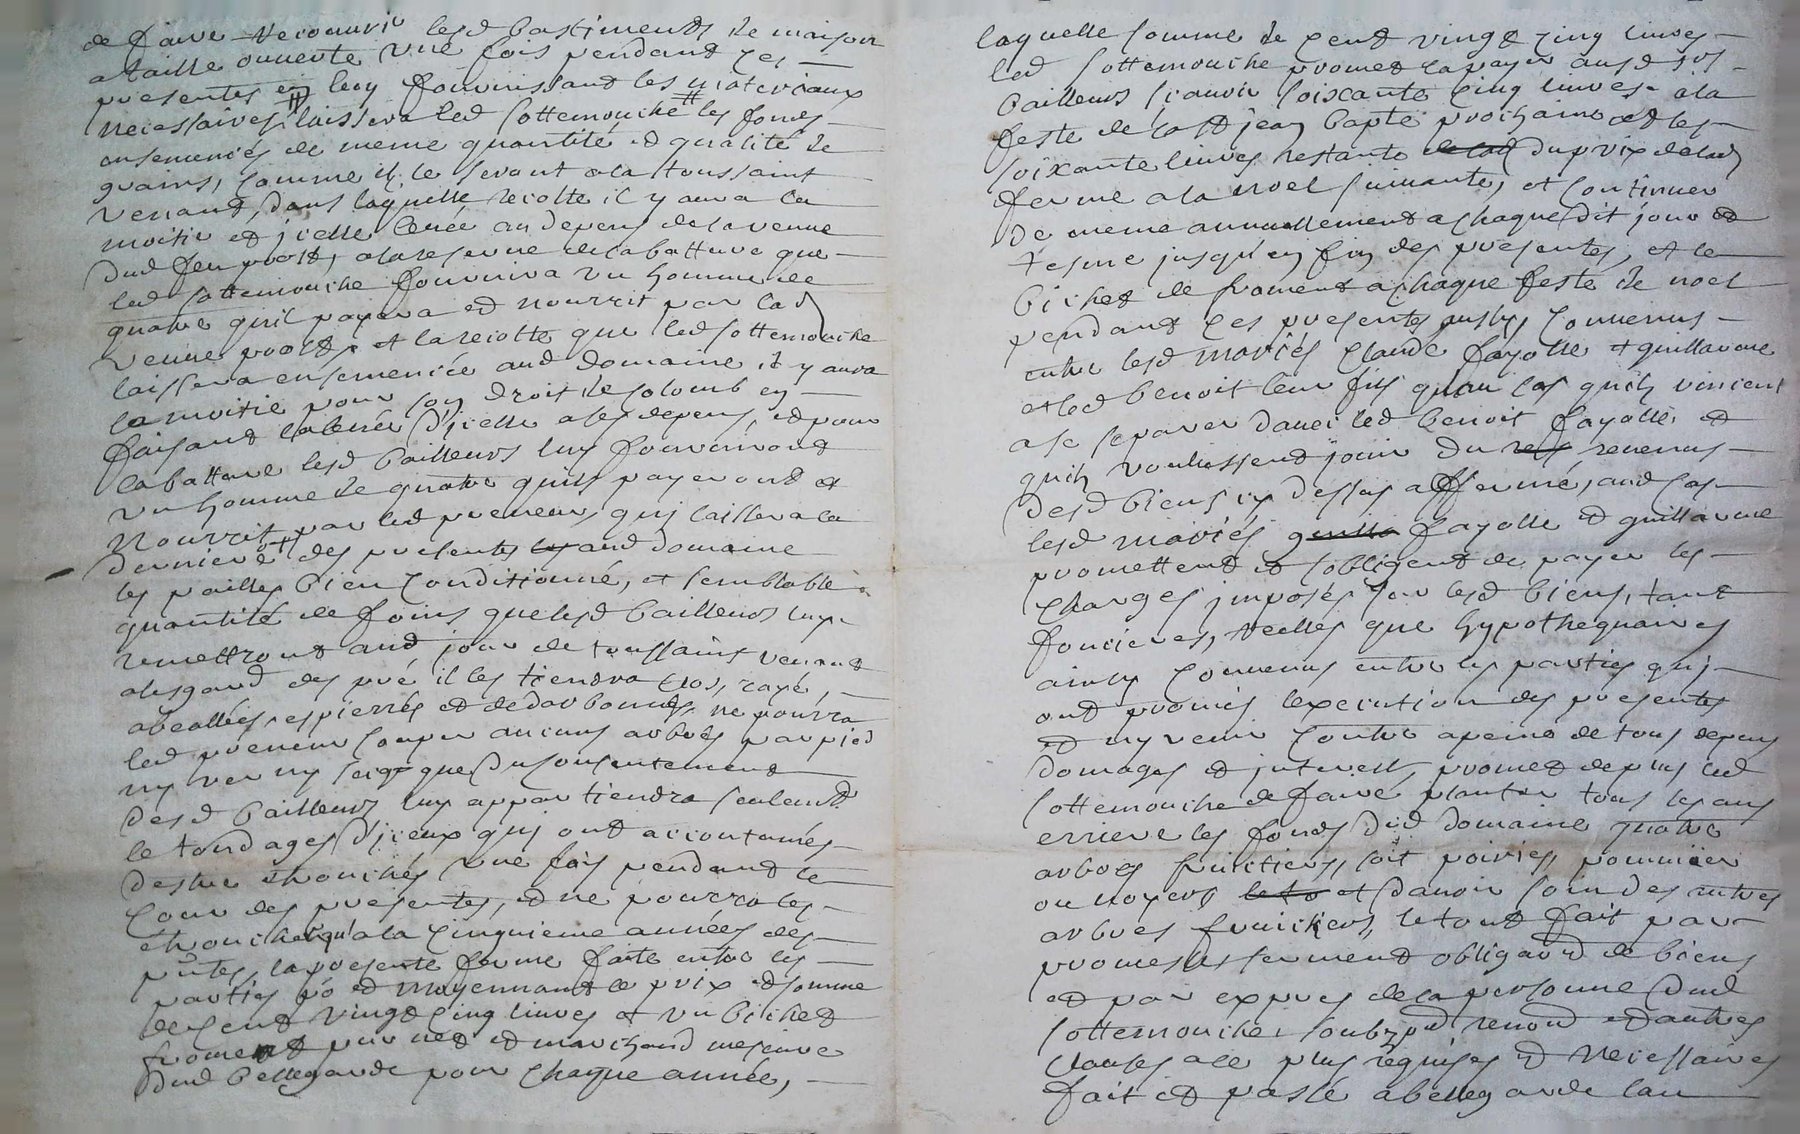 de faire recouvrir lesd bastiments de maison
a taille ouverte une fois pendant ces
presentes en luy fournissant les materiaux
necessaires laissera led sottemouche les fonds
ensemencés de meme quantité et qualité de
grains, comme ils le seront a la toussaint
venant, dans laquelle recolte il y aura la
moitié et jcelle levée au depens de la veuve
dud feu poost, a la reserve de la batture que
led sottemouche fournira un homme de
quatre quil payera et nourrit par lad
veuve poost, et la recolte que led sottemouche
laissera ensemencée aud domaine il y aura
la moitié pour son droit de colomb en
faisant la levée d'jcelle a ses depens, et pour
la batture lesd bailleurs luy fourniront
un homme de quatre quils payeront et
nourrit par led preneur, quj laissera la
derniere des presentes aud domaine
les pailles bien conditionné, et semblable
quantité de foins que lesd bailleurs luy
remettront aud jour de toussaint venant
a lesgard des pré il les tiendra clos, rayé,
abeallées, espierrés et dedarbonnés, ne pourra
led preneur couper aucuns arbres par pied
ny ver ny secq que du consentement
desd bailleurs luy appartiendra seulemt
le tondages d'jceux quj ont accoutumés
destre etrouchés une fois pendant le
cour des presentes, et ne pourra les
etroucher qu'a la cinquieme années des
pntes, la presente ferme faite entre les
parties po et moyennant le prix et somme
de cent vingt cinq livres et un bichet
froment pur net et marchand mesure
dud bellegarde pour chaque année,
laquelle somme de cent vingt cinq livres
led sottemouche promet la payer ausd srs
bailleurs scavoir soixante cinq livres a la
feste de la st jean bapte prochaine et les
soixante livres restante du prix de lad
ferme a la noel suivante, et continuer
de meme annuellement a chaque dit jour et
terme jusqu'en fin des presentes, et le
bichet de froment a chaque feste de noel
pendant ces presentes convenus
entre lesd mariés claude fayolle et guillaume
et led benoit leur fils qu'au cas quils vinsient
a se separer d'avec led benoit fayolle et
quils voulussent jouir du revenus
desd biens cy dessus affermé, aud cas
lesd mariés fayolle et guillaume
promettent et sobligent de payer les
charges jmposés sur lesd biens, tant
foncieres, reelles que hypothequaires
ainsy convenus entre les parties quj
ont promis lexecution des presentes
et ny venir contre a peine de tous depens
domages et jnterest, promet de plus led
sottemouche de faire planter tous les ans
erriere les fonds dud domaine quatre
arbres fruictiers, soit poiries, pommier
ou noyers et d'avoir soin des autres
arbres fruictiers, le tout fait par
promesses serment obligaon de biens
et par expres de la personne dud
sottemouche, soubz pn renon et autres
clauses a ce plus requises et necessaires
fait et passé a bellegarde lan